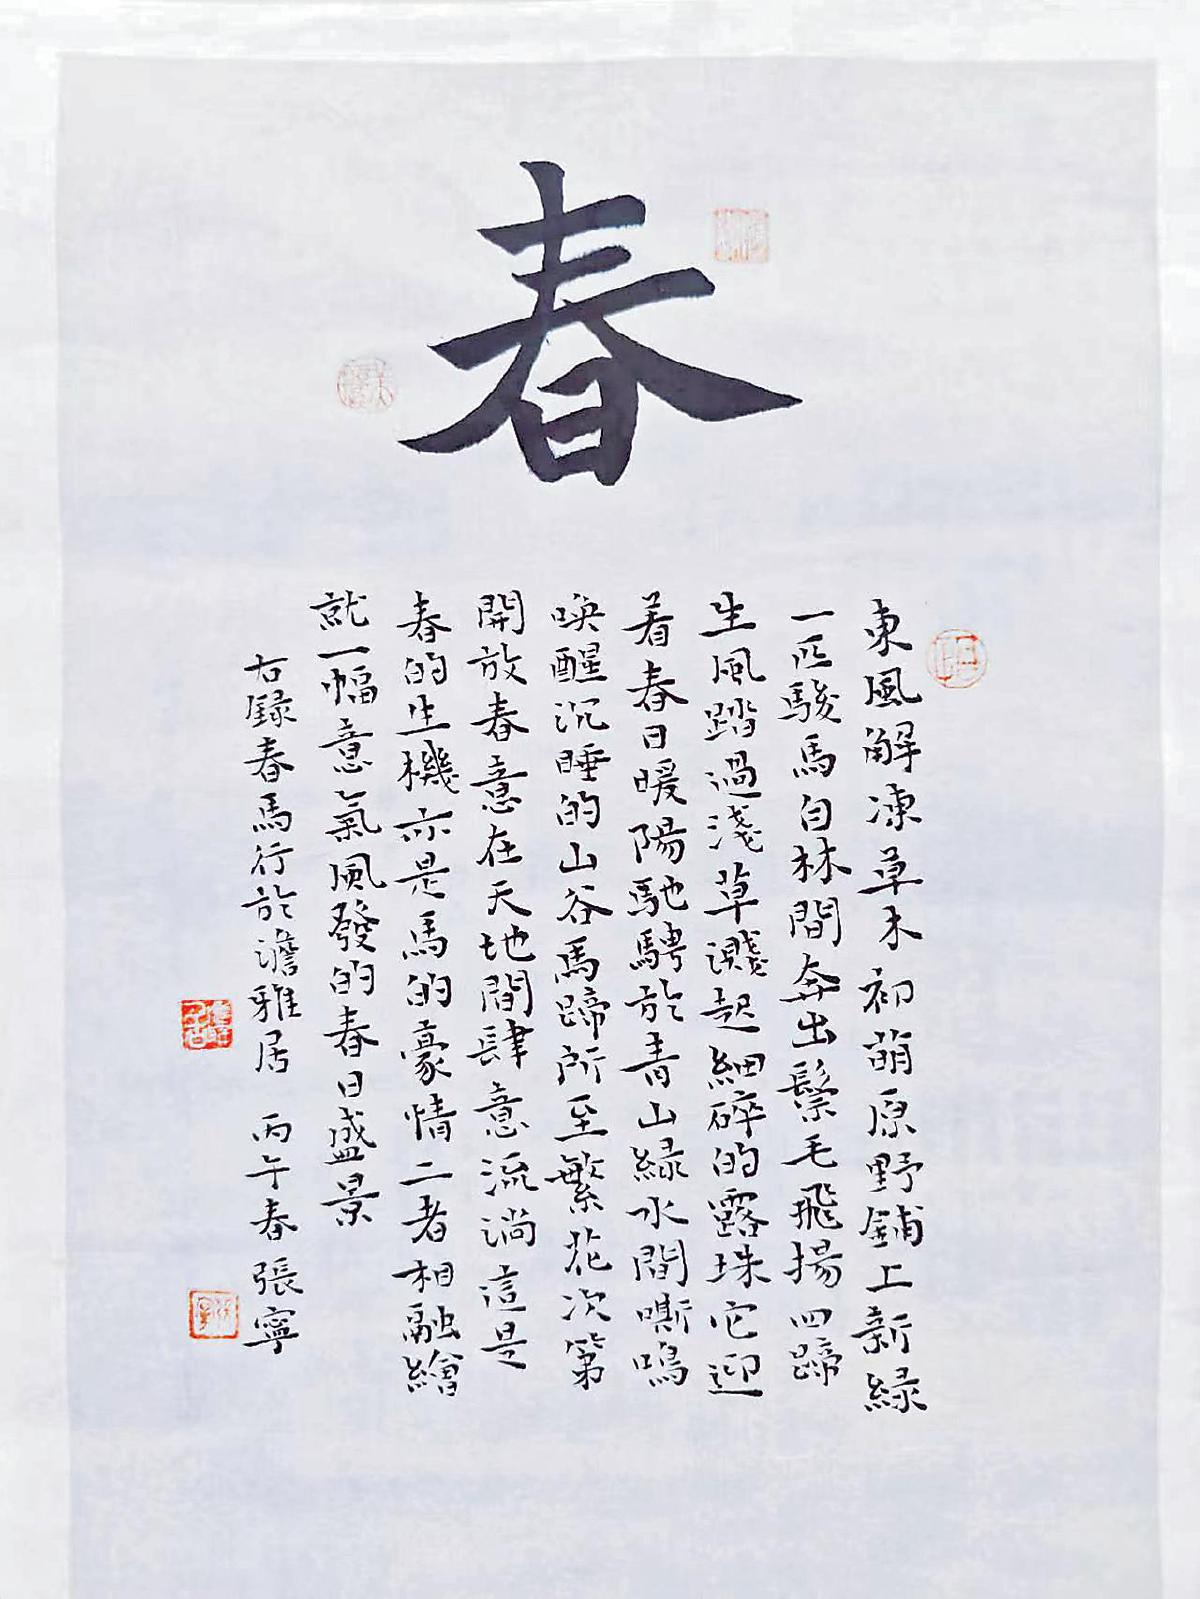 春
東風解凍草木初萌原野鋪上新緑
一匹駿馬自林間奔出鬃毛飛揚四蹄
生風踏過淺草濺起細碎的露珠它迎
着春日暖陽馳騁於青山緑水間嘶鳴
喚醒沉睡的山谷馬蹄所至繁花次第
開放春意在天地間肆意流淌這是
春的生機亦是馬的豪情二者相融繪
就一幅意氣風發的春日盛景
右録春馬行於澹雅居 丙午春張寧